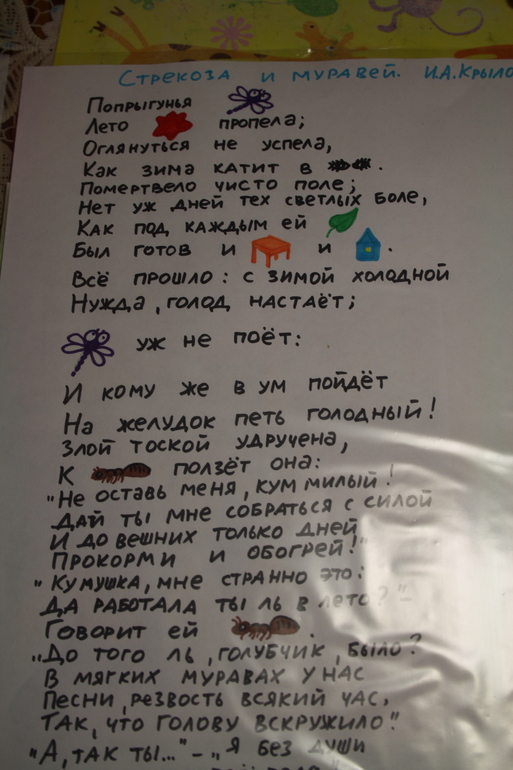 Стрекоза и муравей. И.А.Крыло
Попрыгунья
Лето пропела;
Оглянуться не успела,
Как зима катит в .
Помертвело чисто поле;
Нет уж дней тех светлых боле,
Как под каждым ей
Был готов и и .
Всё прошло: с зимой холодной
Нужда, голод настаёт;
уж не поёт:
И кому же в ум пойдёт
На желудок петь голодный!
Злой тоской удручена,
К ползёт она:
"Не оставь меня, кум милый!
Дай ты мне собраться с силой
И до вешних только дней
Прокорми и обогрей!"
"Кумушка, мне странно это:
Да работала ты ль в лето?"-
Говорит ей .
"До того ль, голубчик, было?
В мягких муравах у нас
Песни, резвость всякий час,
Так, что голову вскружило"
"А, так ты..." - "Я без души